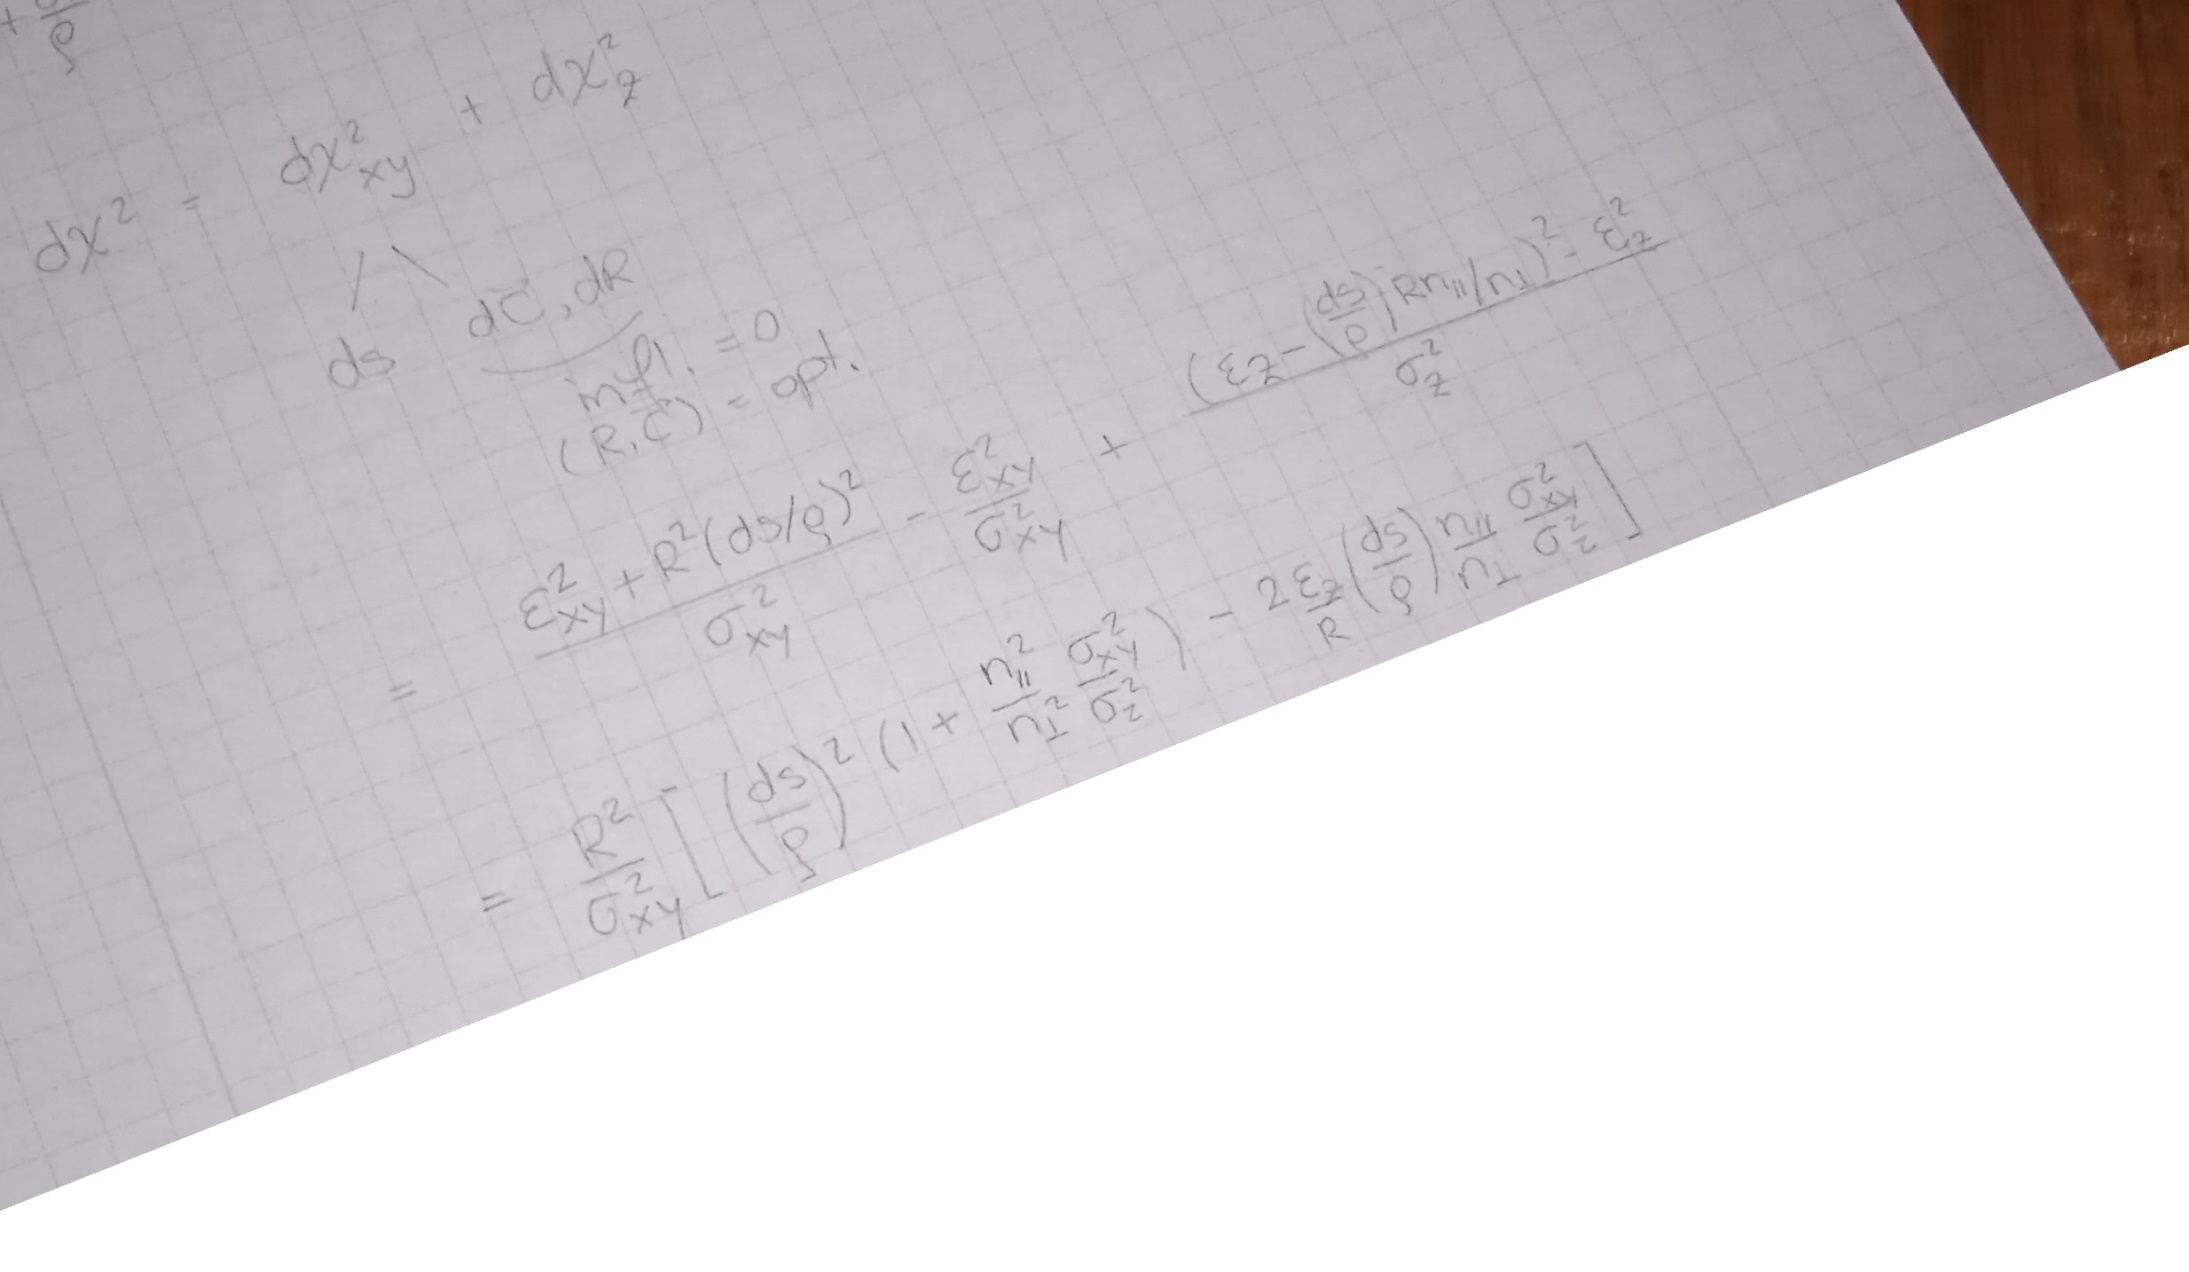 dχ² = dχ²_xy + dχ²_z
/ \
ds dC⃗, dR
infl. = 0
(R, C⃗) = opt.
= (ε²_xy + R²(ds/ρ)²)/σ²_xy - ε²_xy/σ²_xy + ((ε_z - (ds/ρ) R n_∥/n_⊥)² - ε²_z)/σ²_z
= R²/σ²_xy [ (ds/ρ)² (1 + n²_∥/n²_⊥ σ²_xy/σ²_z) - 2 ε_z/R (ds/ρ) n_∥/n_⊥ σ²_xy/σ²_z ]